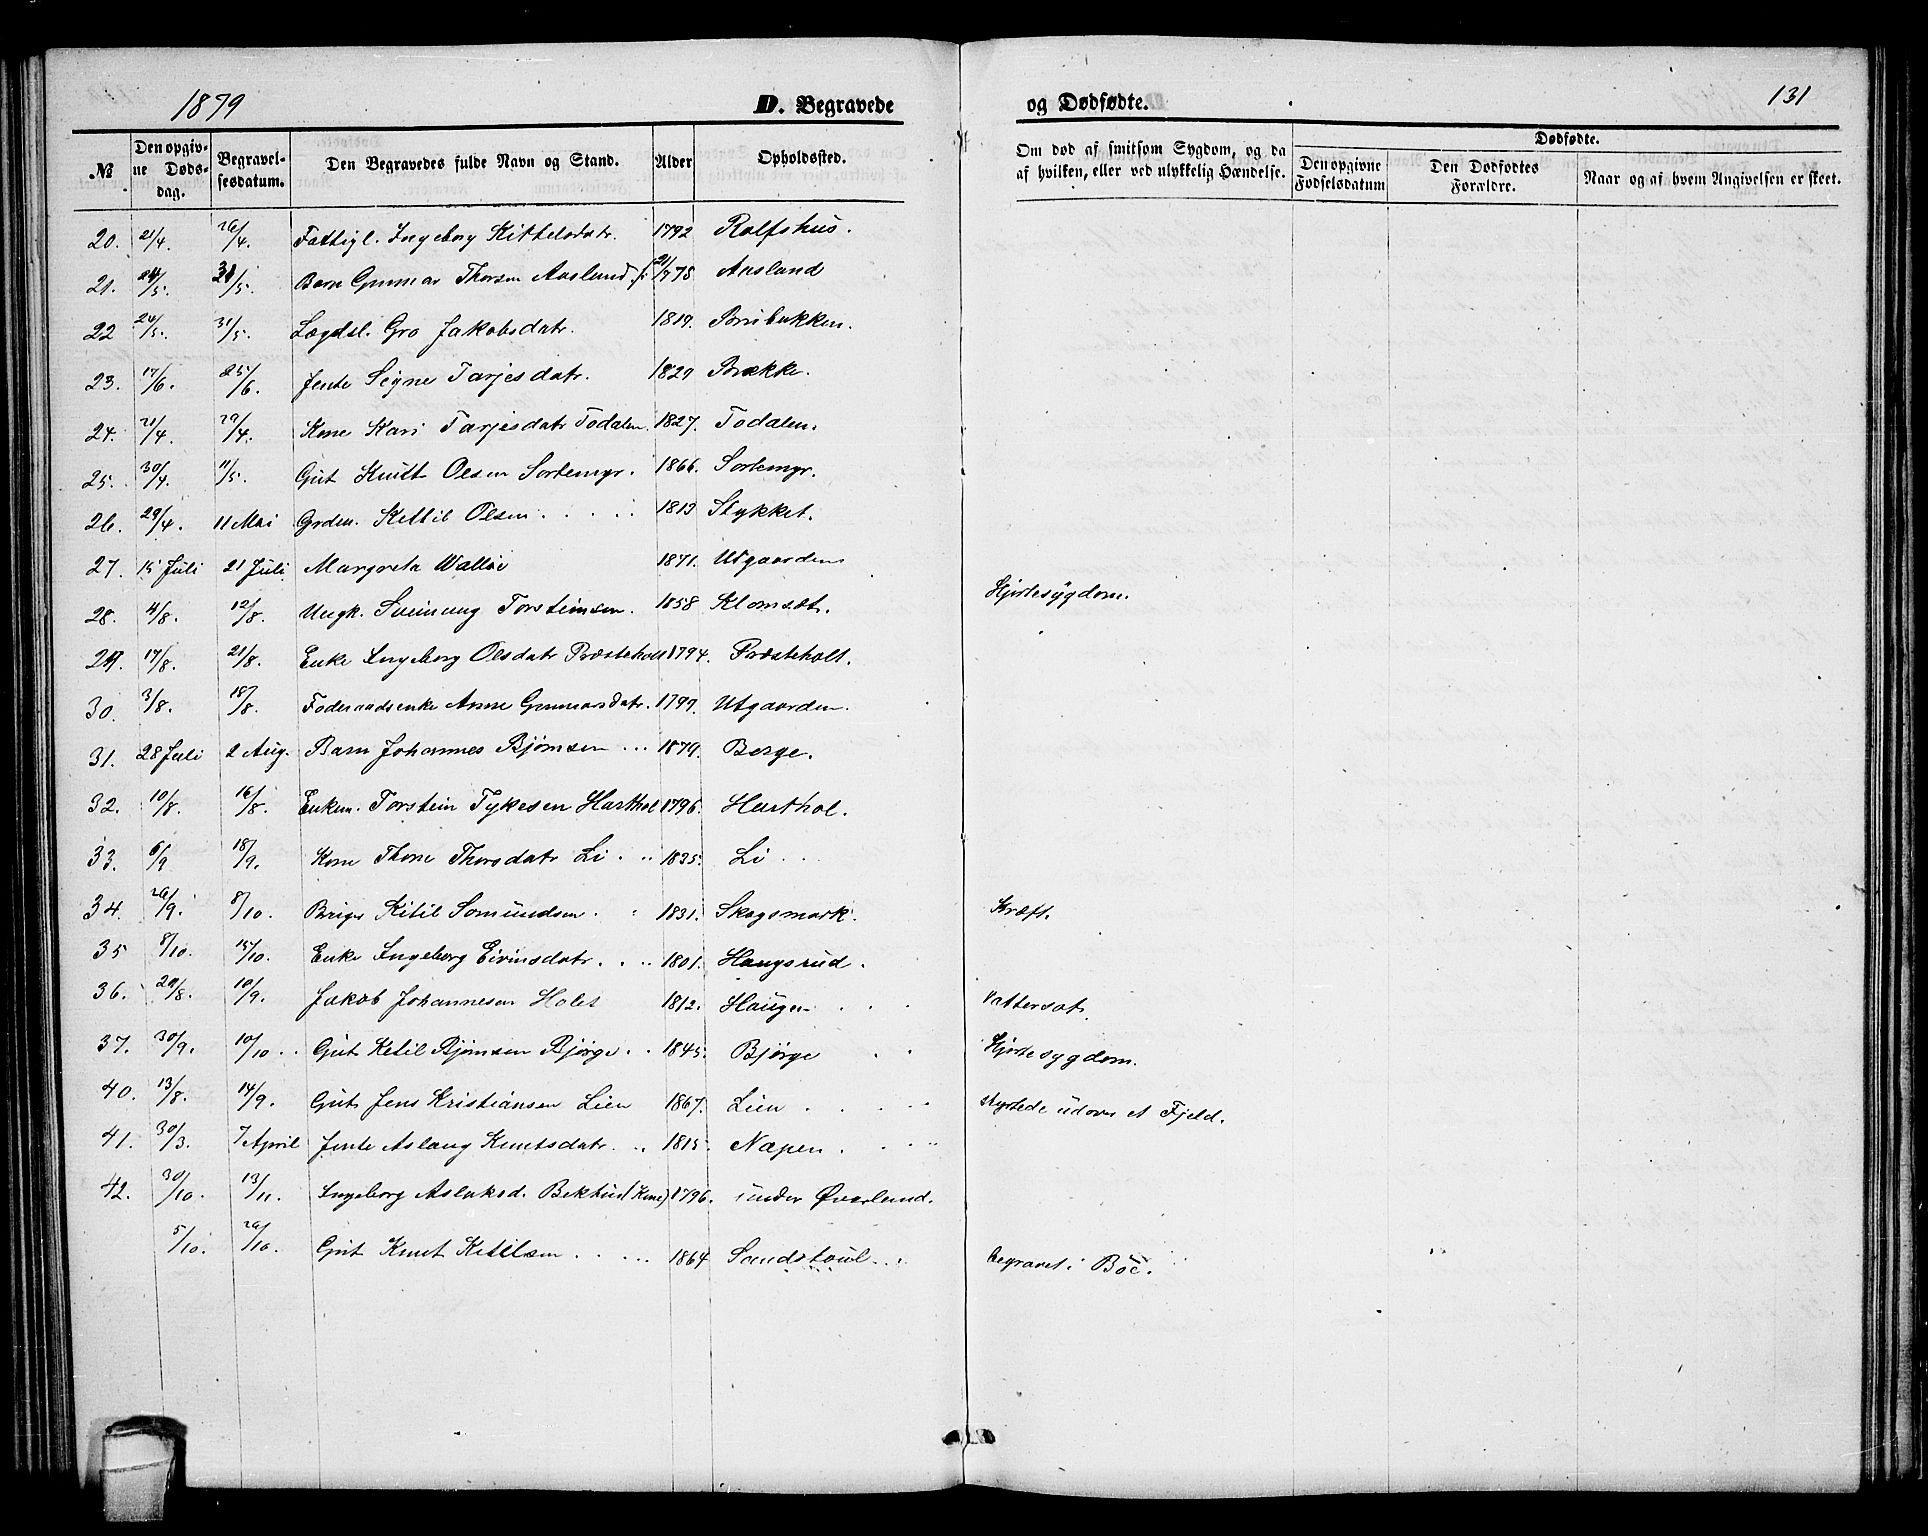 1879
D. Begravede
og Dødfødte.
131
No
Den opgivne Dødsdag.
Begravelsesdatum.
Den Begravedes fulde Navn og Stand.
Alder
Opholdssted.
Om død af smitsom Sygdom, og da af hvilken, eller ved ulykkelig Hændelse.
Dødfødte.
Den opgivne Fødselsdatum
Den Dødfødtes Forældre.
Naar og af hvem Angivelsen er skeet.
20. 21/4. 26/4. Fattigl. Ingeborg Kittelsdatr. 1792 Rolfshus.
21. 24/5. 31/5. Barn Gunnar Thorsen Aasland. 21/7 78. Aasland
22 24/5. 31/5. Lægdsl. Gro Jakobsdatr. 1819. Brubakken.
23. 17/6. 25/6. Jente Signe Tarjesdatr. 1829 Brække.
24. 21/4. 29/4. Kone Kari Tarjesdatr Todalen. 1827. Todalen.
25. 30/4. 11/5. Gut Knutt Olsen Sortemyr. 1866. Sortemyr.
26. 29/4. 11 Mai Grdm. Kettil Olsen . . . . 1813 Stykket.
27. 15 Juli 21 Juli. Margreta Walløe 1871. Utgaarden
28. 4/8. 12/8. Ungk. Sveinung Torsteinsen. 1858 Klomsæt. Hjertesygdom.
29. 17/8. 21/8. Enke Ingeborg Olsdatr Præsteholt 1794. Præsteholt.
30. 3/8. 18/8. Føderaadsenke Anne Gunnarsdatr. 1799. Utgaarden.
31. 28 Juli 2 Aug. Barn Johannes Bjørnsen ... 1879. Berge.
32. 10/8. 16/8. Enkem. Torstein Tykesen Harthol 1796. Harthol.
33. 6/9 18/9. Kone Thone Thorsdatr Li . .. 1835. Li . . .
34. 26/9. 8/10. Briger Kitil Somundsen . : 1831. Skogsmark. Kræft.
35 8/10. 15/10. Enke Ingeborg Eivinsdatr. . .. 1801. Haugsrud.
36. 29/8. 10/9. Jakob Johannesen Holet 1812. Haugen . . Vattersot.
37. 30/9. 10/10 .. Gut Ketil Bjørnsen Bjørge. . 1845. Bjørge . . Hjertesygdom.
40. 13/8. 14/9. Gut Jens Kristiansen Lien 1867. Lien . . . .. styrtede udover et Fjeld.
41. 30/3. 7 April Jente Aslaug Knutsdatr. .. 1815. Næpen. . ..
42. 30/10. 13/11. Ingeborg Aslaksd. Bekhus (Kone) 1796. under Øverland.
5/10. 29/10. Gut Knut Kitilsen . . . . 1864 Sandstoul . . begravet i Bøe.